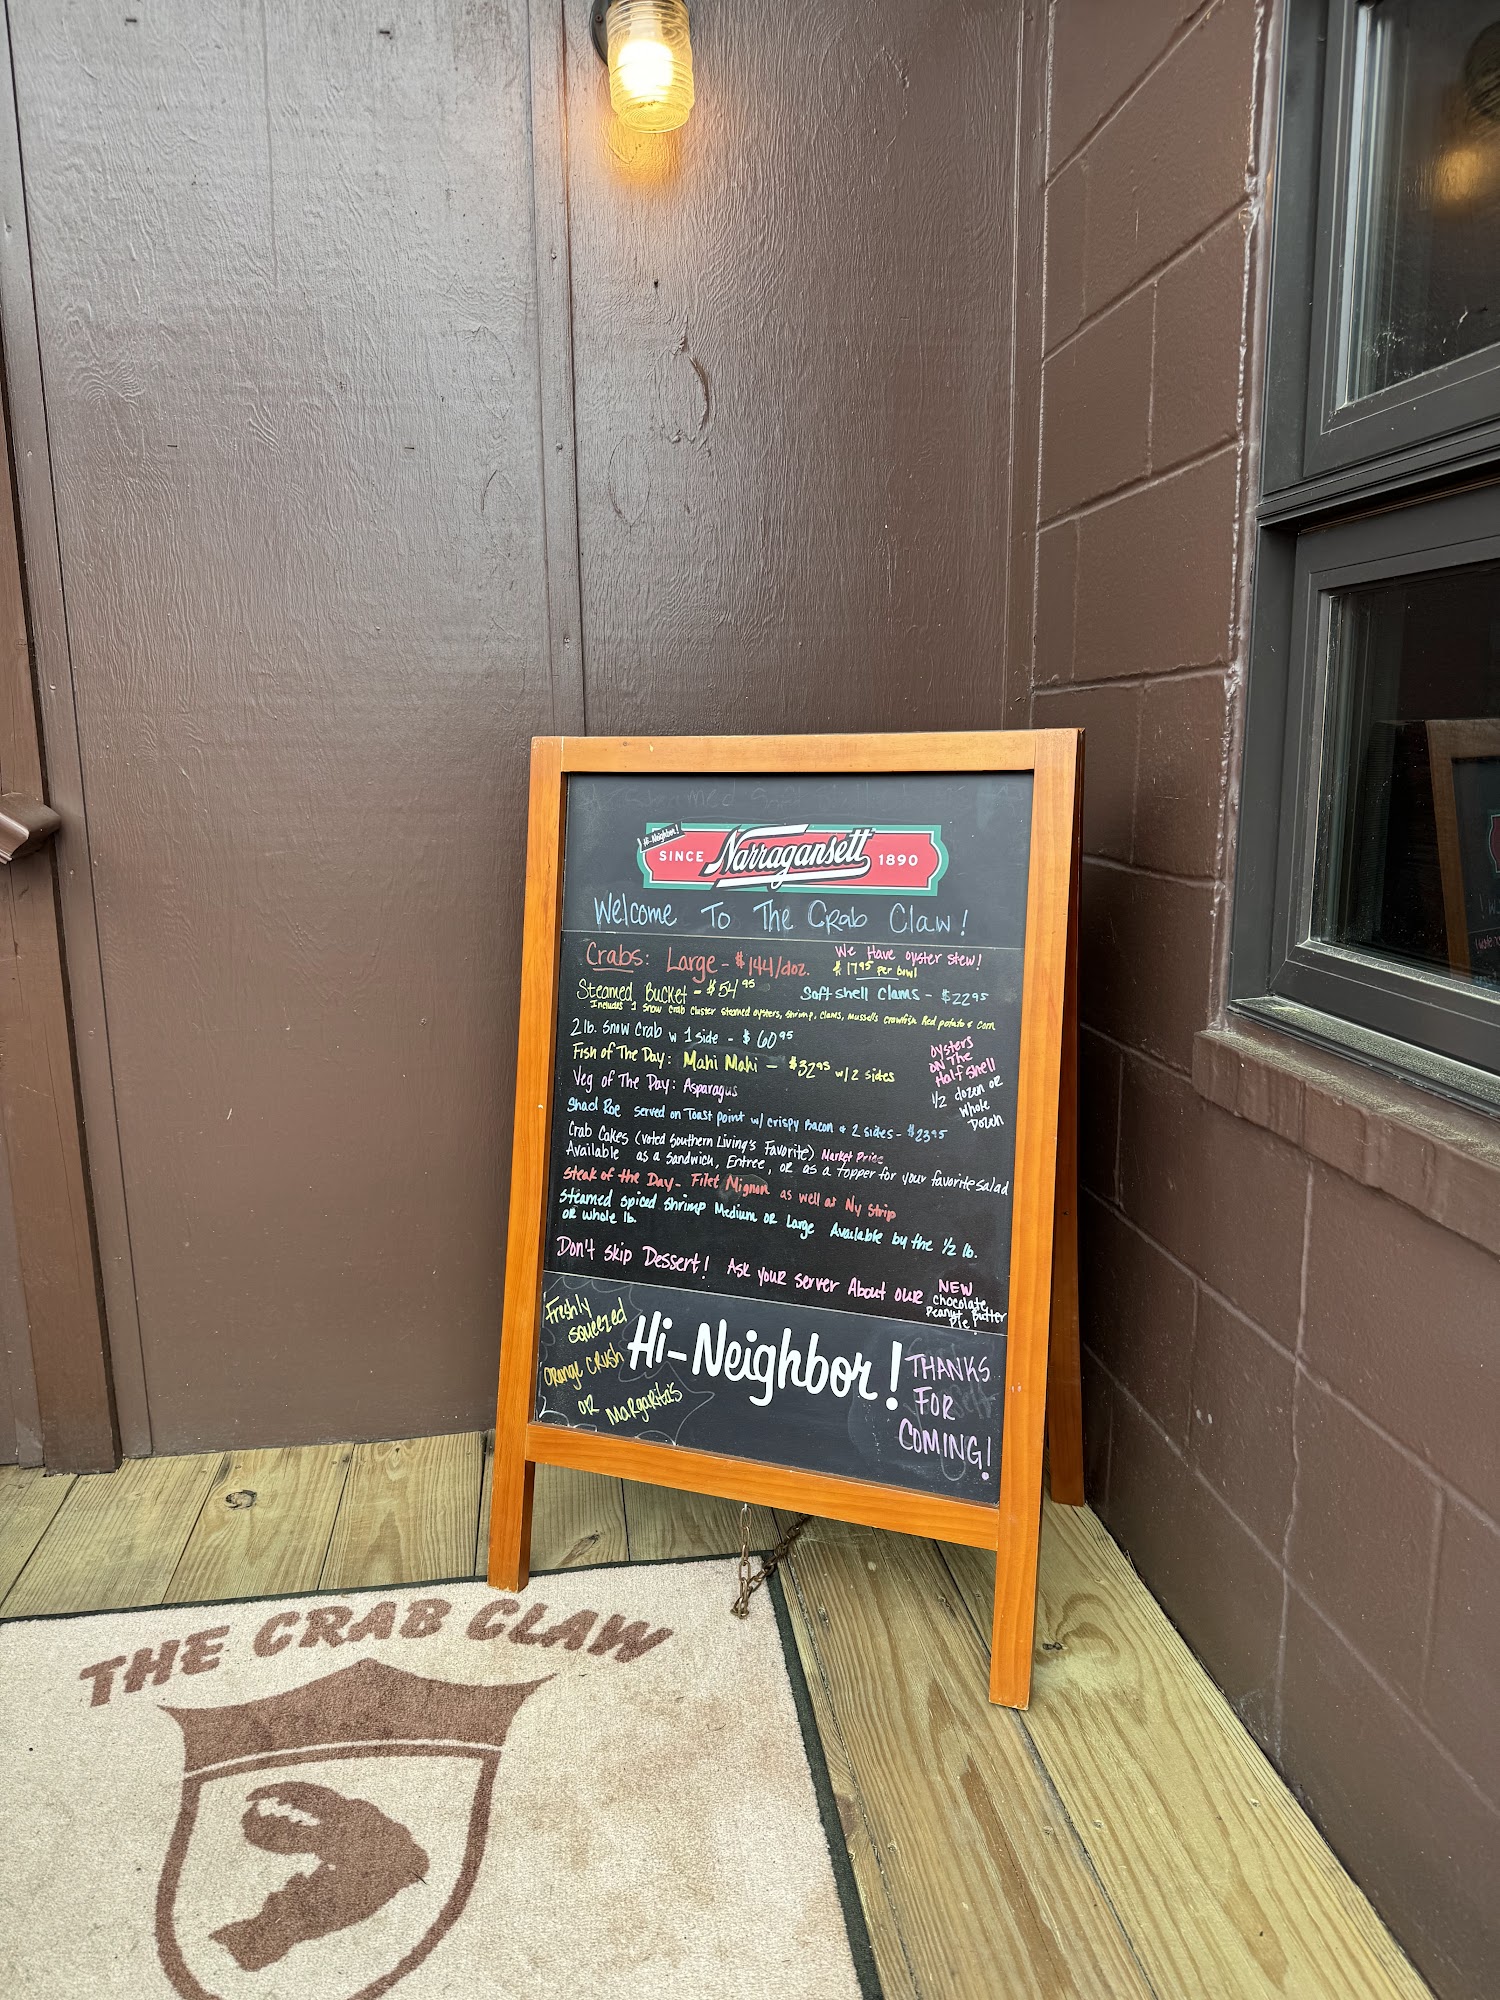 Hi-Neighbor!
SINCE Narragansett 1890
Welcome To The Crab Claw!
Crabs: Large - $144/doz.
We Have oyster stew!
$ 17⁹⁵ per bowl
Steamed Bucket - $54⁹⁵
Soft shell Clams - $22⁹⁵
Includes 1 snow crab cluster steamed oysters, shrimp, clams, mussels crawfish Red potato & corn
2 lb. Snow Crab w 1 side - $60⁹⁵
Fish of The Day: Mahi Mahi - $32⁹⁵ w/2 sides
Veg of The Day: Asparagus
oysters
on The
Half shell
1/2 dozen or
Whole
Dozen
Shad Roe served on Toast point w/ crispy Bacon & 2 sides - $23⁹⁵
Crab Cakes (voted Southern Living's Favorite) Market Price
Available as a Sandwich, Entree, or as a topper for your favorite salad
Steak of the Day - Filet Mignon as well as Ny Strip
Steamed spiced shrimp Medium or Large Available by the 1/2 lb.
or whole lb.
Don't skip Dessert! Ask your server About our NEW
chocolate
Peanut Butter
Pie!
Freshly
squeezed
orange crush
or
Margarita's
Hi-Neighbor!
THANKS
FOR
COMING!
THE CRAB CLAW